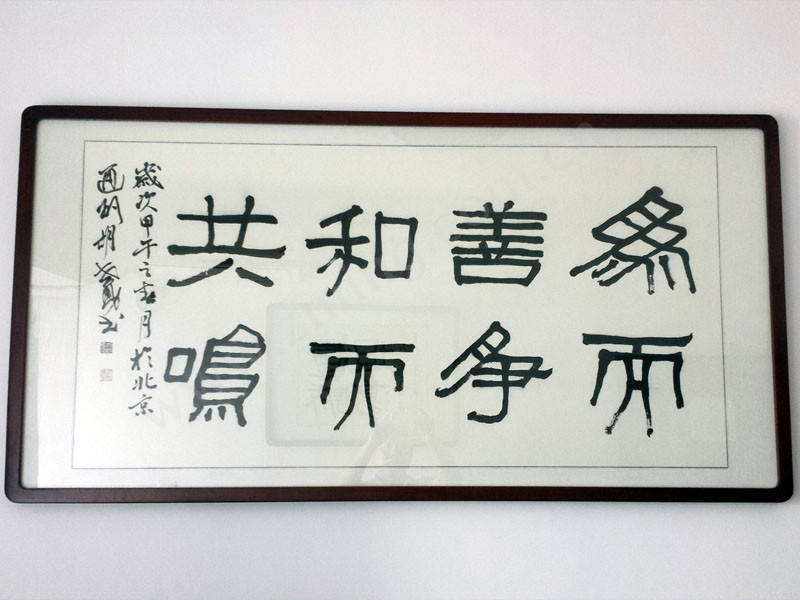 為而
善爭
和而
共鳴
歲次甲午之春月於北京
通州胡
書